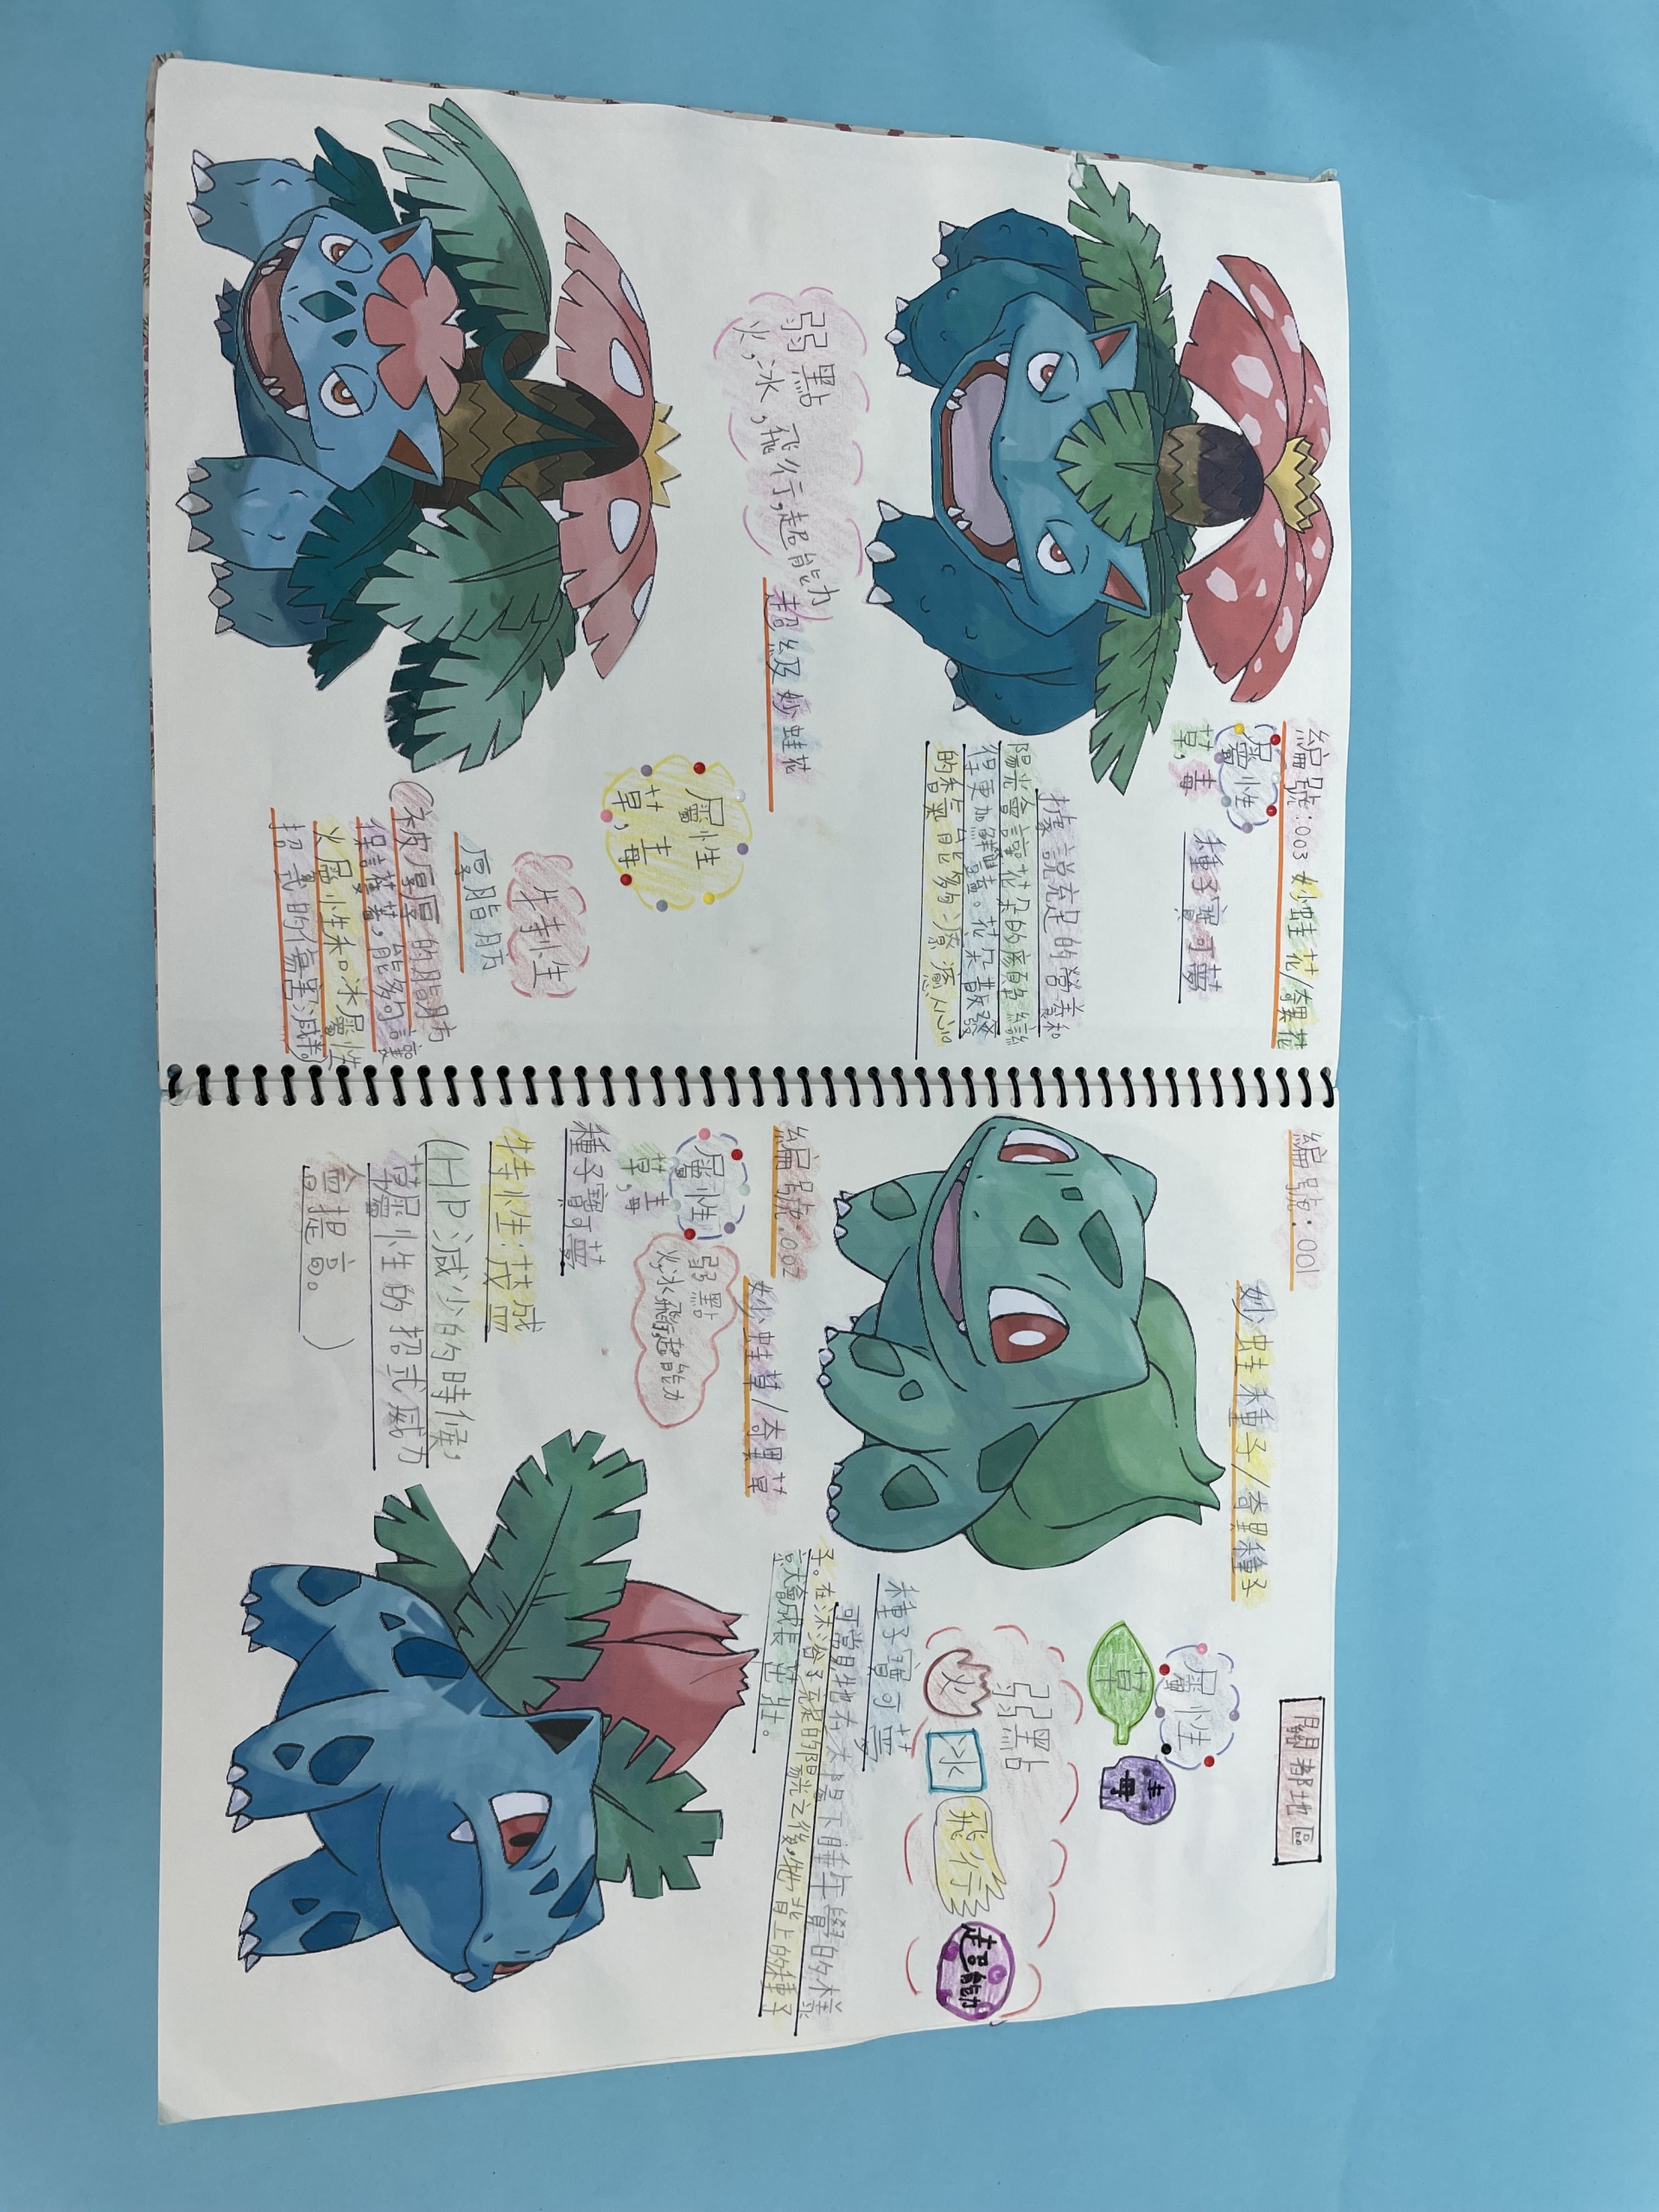 編號:003 妙蛙花/奇異花
屬性
草,毒
種子寶可夢
據說充足的營養和
陽光會讓花朵的顏色變
得更加鮮豔。花朵散發
的香氣能夠療癒人心
弱點
火,冰,飛行,超能力
超級妙蛙花
屬性
草,毒
特性
厚脂肪
(被厚厚的脂肪
保護著,能夠讓
火屬性和冰屬性
招式的傷害減半。)
編號:001
關都地區
妙蛙種子/奇異種子
屬性
草 毒
弱點
火 冰 飛行 超能力
種子寶可夢
可常見牠在太陽下睡午覺的樣
子。在沐浴了充足的陽光之後,牠背上的種子
就會成長茁壯。
編號:002
妙蛙草/奇異草
屬性
草,毒
弱點
火,冰,飛行,超能力
種子寶可夢
特性:茂盛
(HP減少的時候,
草屬性的招式威力
會提高。)